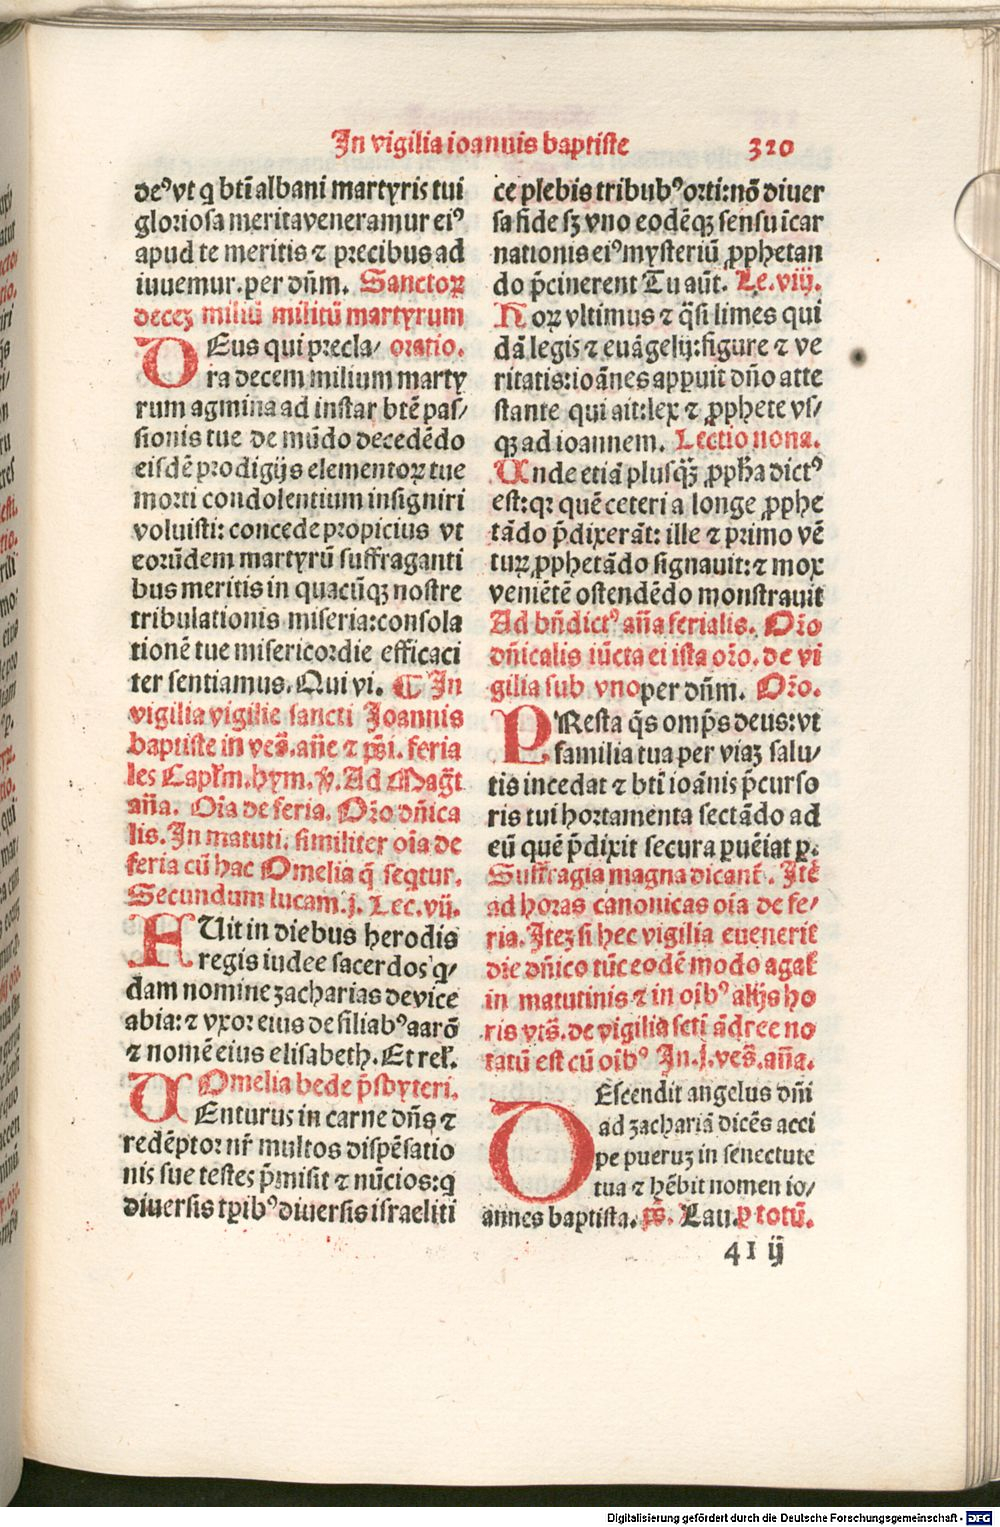 In vigilia ioannis baptiste 320
deꝰ vt q bti᷒ albani martyris tui
gloriosa merita veneramur eiꝰ
apud te meritis ⁊ precibus ad
iuuemur. per dn̄m. Sanctoꝝ
deceꝫ miliū militū martyrum
DEus qui precla/ oratio.
ra decem milium marty
rum agmina ad instar btē pas/
sionis tue de mūdo decedēdo
eisdē prodigijs elementoꝝ tue
morti condolentium insigniri
voluisti: concede propicius vt
eorūdem martyrū suffraganti
bus meritis in quacūqꝫ nostre
tribulationis miseria: consola
tionē tue misericordie efficaci
ter sentiamus. Qui vi. ¶ In
vigilia vigilie sancti Ioannis
baptiste in ves̄. an̄e ⁊ ps̄i. feria
les Capl̄m. hym. v̄. Ad Maḡt
an̄a. Oīa de feria. Or̄o dn̄ica
lis. In matuti. similiter oīa de
feria cū hac Omelia q̄ seqtur.
Secundum lucam. j. Lec. vij.
FUit in diebus herodis
regis iudee sacerdos q/
dam nomine zacharias de vice
abia: ⁊ vxor eius de filiabꝰ aarō
⁊ nomē eius elisabeth. Et rel̄.
Omelia bede p̄sbyteri.
VEnturus in carne dn̄s ⁊
redēptor nr̄ multos dispēsatio
nis sue testes p̄misit ⁊ nūcios: q
diuersis tꝑibꝰ diuersis israeliti
ce plebis tribubꝰ orti: nō diuer
sa fide sꝫ vno eodēqꝫ sensu īcar
nationis eiꝰ mysteriū ꝓphetan
do p̄cinerent Tu aūt. Le. viij.
Horꝝ vltimus ⁊ q̄si limes qui
dā legis ⁊ euāgelij: figure ⁊ ve
ritatis: ioānes appuit dn̄o atte
stante qui ait: lex ⁊ ꝓphete vs/
qꝫ ad ioannem. Lectio nona.
Unde etiā plusqꝫ̄ ꝓph̄a dictꝰ
est: qꝛ quē ceteri a longe ꝓphe
tādo p̄dixerāt: ille ⁊ primo vē
turꝝ ꝓphetādo signauit: ⁊ mox
veniētē ostendēdo monstrauit
Ad bn̄dictꝰ an̄a ferialis. Or̄o
dn̄icalis iūcta ei ista or̄o. de vi
gilia sub vno per dn̄m. Or̄o.
PResta q̄s omp̄s deus: vt
familia tua per viaꝫ salu/
tis incedat ⁊ bti᷒ ioānis p̄curso
ris tui hortamenta sectādo ad
eū quē p̄dixit secura ꝑuēiat ꝑ.
Suffragia magna dicant̄. Itē
ad horas canonicas oīa de fe/
ria. Iteꝫ si hec vigilia euenerit
die dn̄ico tūc eodē modo agat̄
in matutinis ⁊ in oībꝰ alijs ho
ris vts̄. de vigilia scti᷒ ādree no
tatū est cū oībꝰ In. j. ves̄. an̄a.
DEscendit angelus dn̄i
ad zachariā dicēs acci
pe pueruꝫ in senectute
tua ⁊ hēbit nomen io/
annes baptista. ps̄. Lau. ꝑ totū.
41 ij
Digitalisierung gefördert durch die Deutsche Forschungsgemeinschaft - DFG